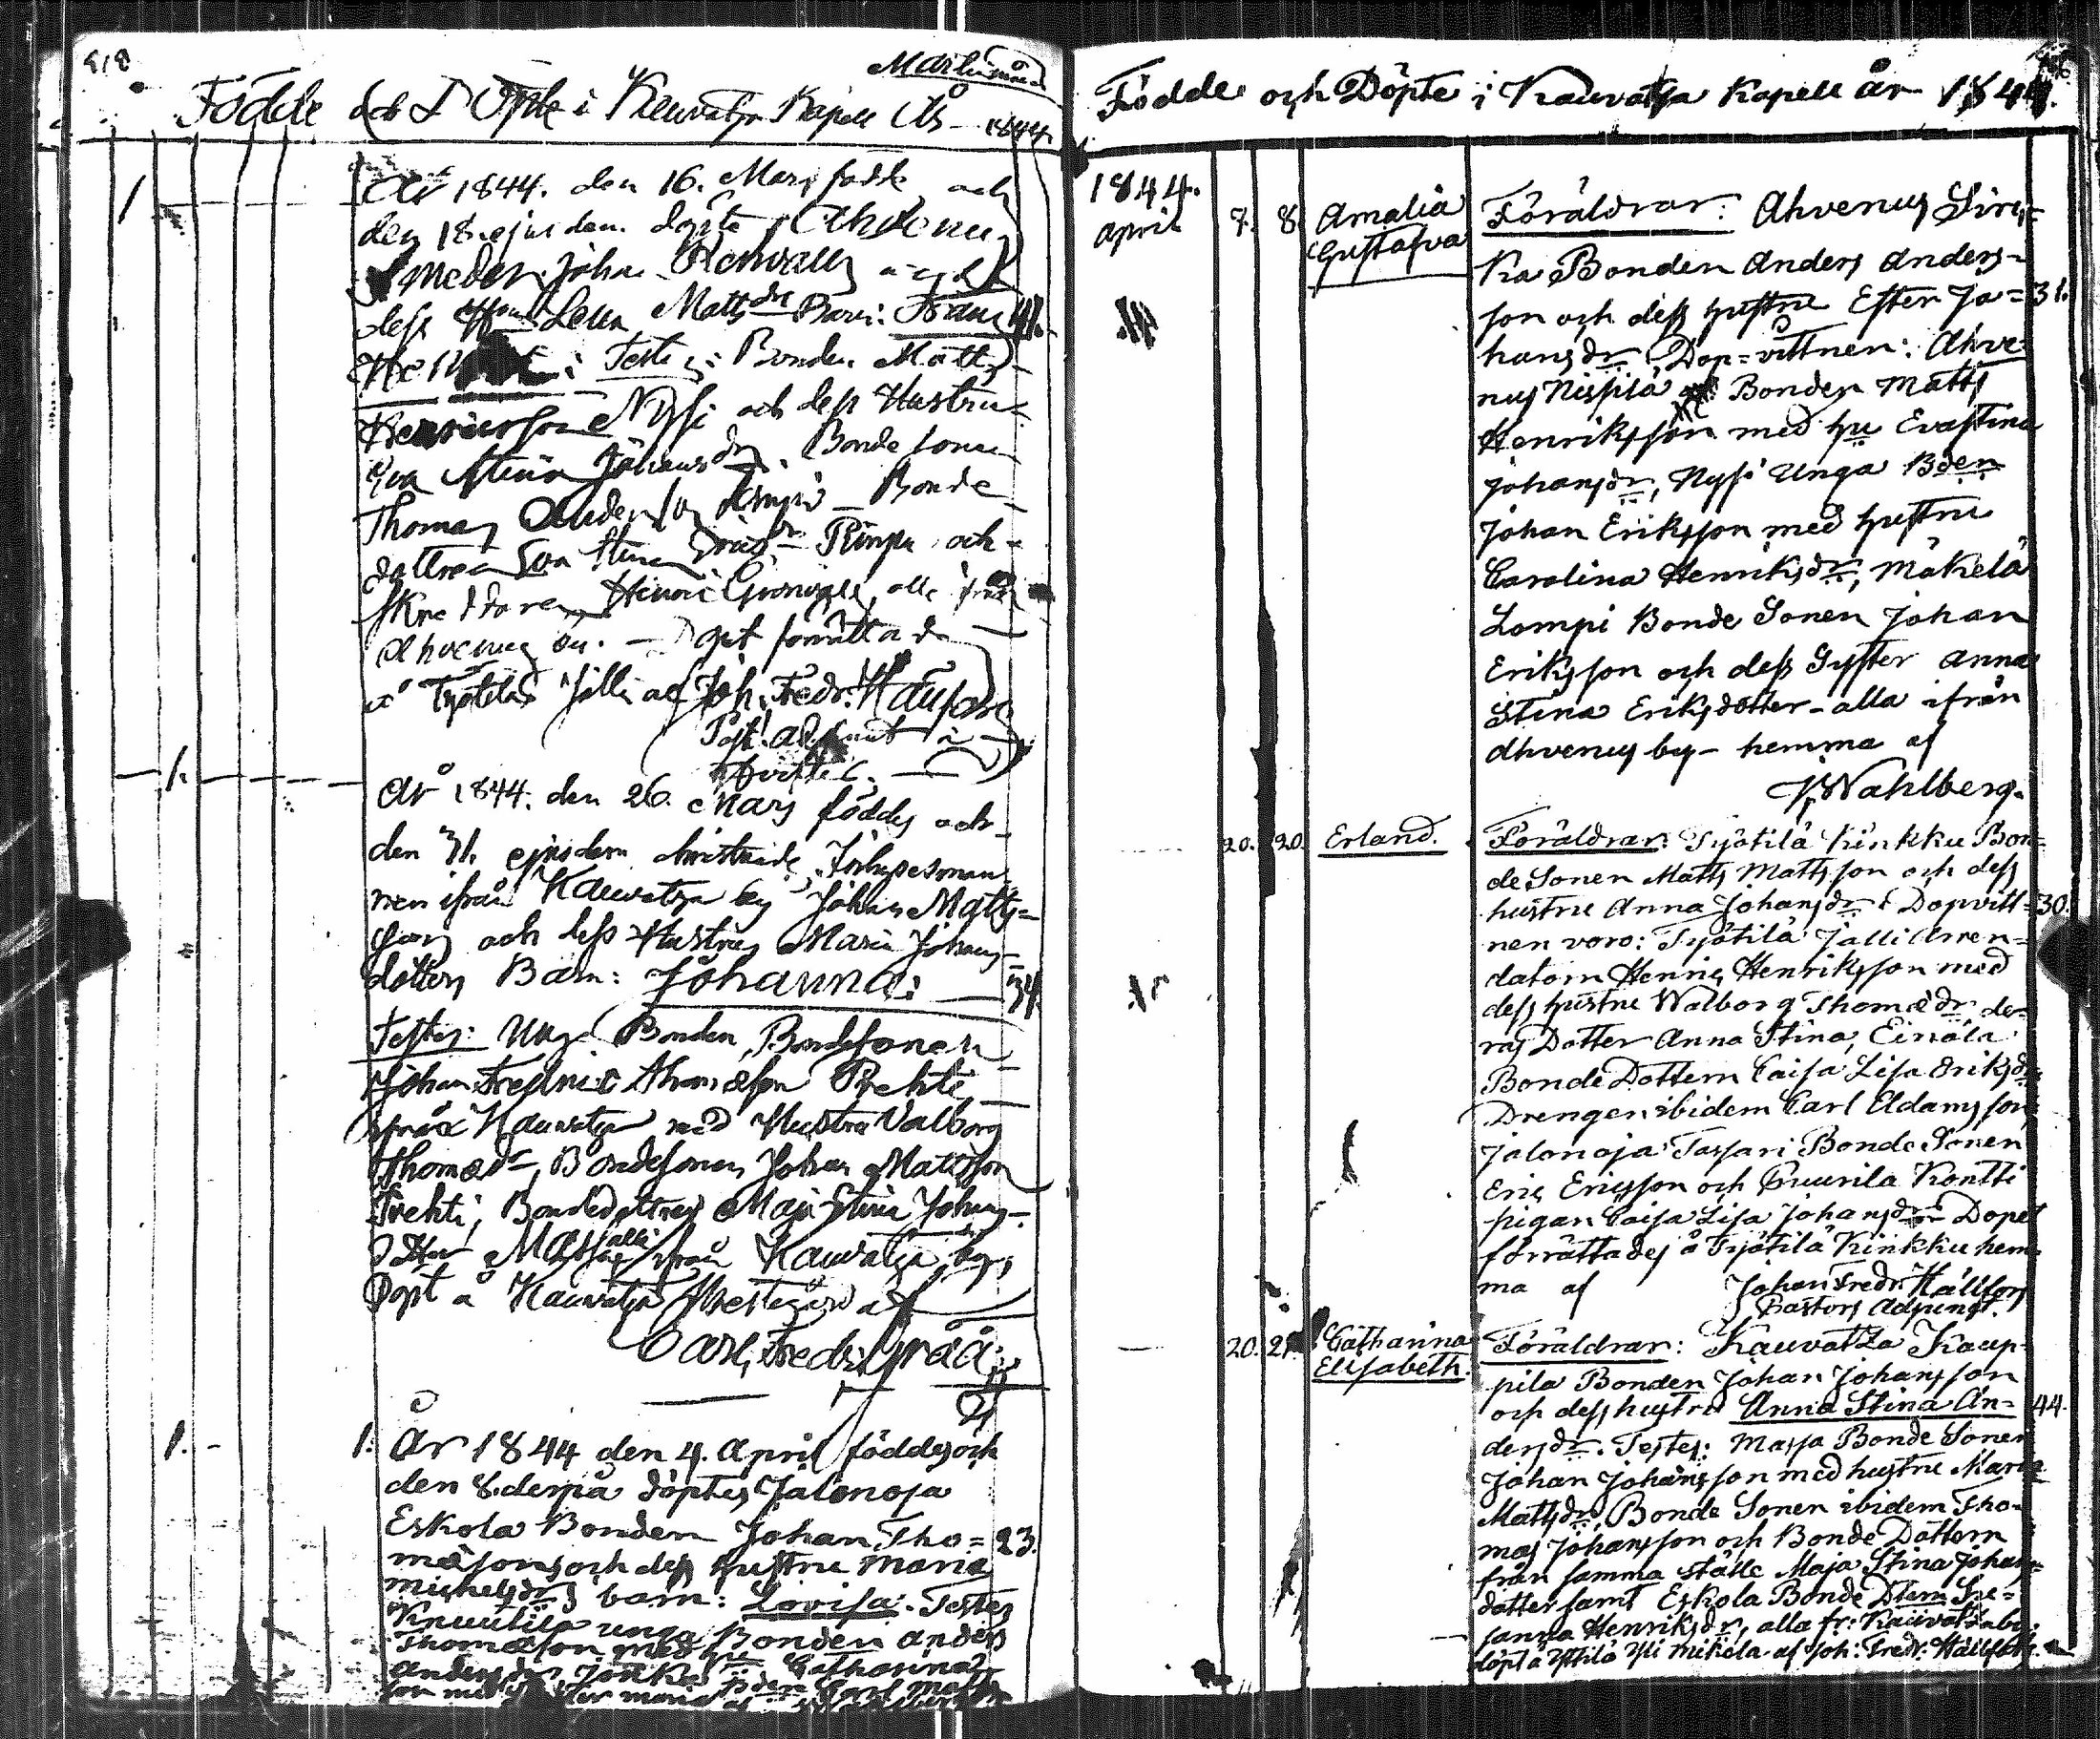 Martii månad
Födde och Döpte i Kauvatsa Kapell År 1844.
År 1844. den 16. Mars född och
den 18 ejusdem döpte Ahvenus
Smeden Johan Renvalls och
dess Hustru Lena Mattsdr Barn: Frans 41.
Testes: Bonden Matts
Henriksson Nyssi och dess Hustru
Eva Stina Johansdr. Bondesonen
Thomas Andersson Lempi Bonde
dottren Eva Stina Rimpi och
Skreddaren Henric Grönvall, alla från
Ahvenus by. — Dopet förrättades
å Työtilä Jalli af Joh. Fredr. Hällfors
Past. adjunct i
År 1844. den 26. Mars föddes och
den 31. ejusdem christnade Inhysesman
nen ifrån Kauvatsa by Johan Matts=
sons och dess Hustrus Maria Johans=
dotters Barn: Johanna: 34.
Testes: Unga Bonden, Bondesonen
Johan Fredric Thomasson Prehti
ifrån Kauvatsa med Hustru Valborg
Thomasdr, Bondesonen Johan Mattsson
Prehti, Bondedottren Maja Stina Johans-
dotter Massa, alla ifrån Kauvatsa by,
Döpt å Kauvatsa Prestegård af
Carl Fredr. Gråå.
1. 1: År 1844 den 4. April föddes och
den 8. derpå döptes Jalonoja
Eskola Bonden Johan Tho= 23.
massons och dess hustru Maria
Michelsdrs barn: Lovisa. Testes
Knuutila unga Bonden Anders
Thomasson med hu Catharina
Andersdr, Bden Carl Matts
son med
Födde och Döpte i Kauvatsa Kapell år 1844.
1844.
April 7. 8. Amalia Gustafva
Föräldrar: Ahvenus Sirk=
ka Bonden Anders Anders=
son och dess hustru Ester Jo= 31.
hansdr. Dop=vittnen: Ahve=
nus Nissilä Bonden Matts
Henriksson med hu Evastina
Johansdr, Nyssi Unga Bden
Johan Eriksson med hustru
Carolina Henriksdr, Mäkelä
Lompi Bonde Sonen Johan
Eriksson och dess Syster Anna
Stina Eriksdotter - alla ifrån
Ahvenus by - hemma af
J. Wahlberg.
20. 20. Erland.
Föräldrar: Työtilä Kinkku Bon=
de Sonen Matts Mattsson och dess
hustru Anna Johansdr. Dopvitt= 30.
nen voro: Työtilä Jalli Arren=
datorn Henric Henriksson med
dess hustru Walborg Thomædr, de=
ras Dotter Anna Stina, Einola
Bonde Dottern Caisa Lisa Eriksdr,
Drengen ibidem Carl Adamsson,
Jalonoja Tassari Bonde Sonen
Eric Ericsson och Knuutila Kontti
pigan Caisa Lisa Johansdr. Dopet
förrättades å Työtilä Kinkku hem=
ma af Johan Fredr. Hällfors
Pastors Adjunct.
— 20. 21. Catharina Elisabeth.
Föräldrar: Kauvatsa Kaup=
pila Bonden Johan Johansson
och dess hustru Anna Stina An= 44.
dersdr. Testes: Massa Bonde Sonen
Johan Johansson med hustru Maria
Mattsdr, Bonde Sonen ibidem Tho=
mas Johansson och Bonde Dottern
från samma ställe Maja Stina Johans=
dotter samt Eskola Bonde Dtern Su=
sanna Henriksdr, alla fr: Kauvatsa by.
döpt å Yttilä Yli Mikola af Joh: Fredr: Hällfors.